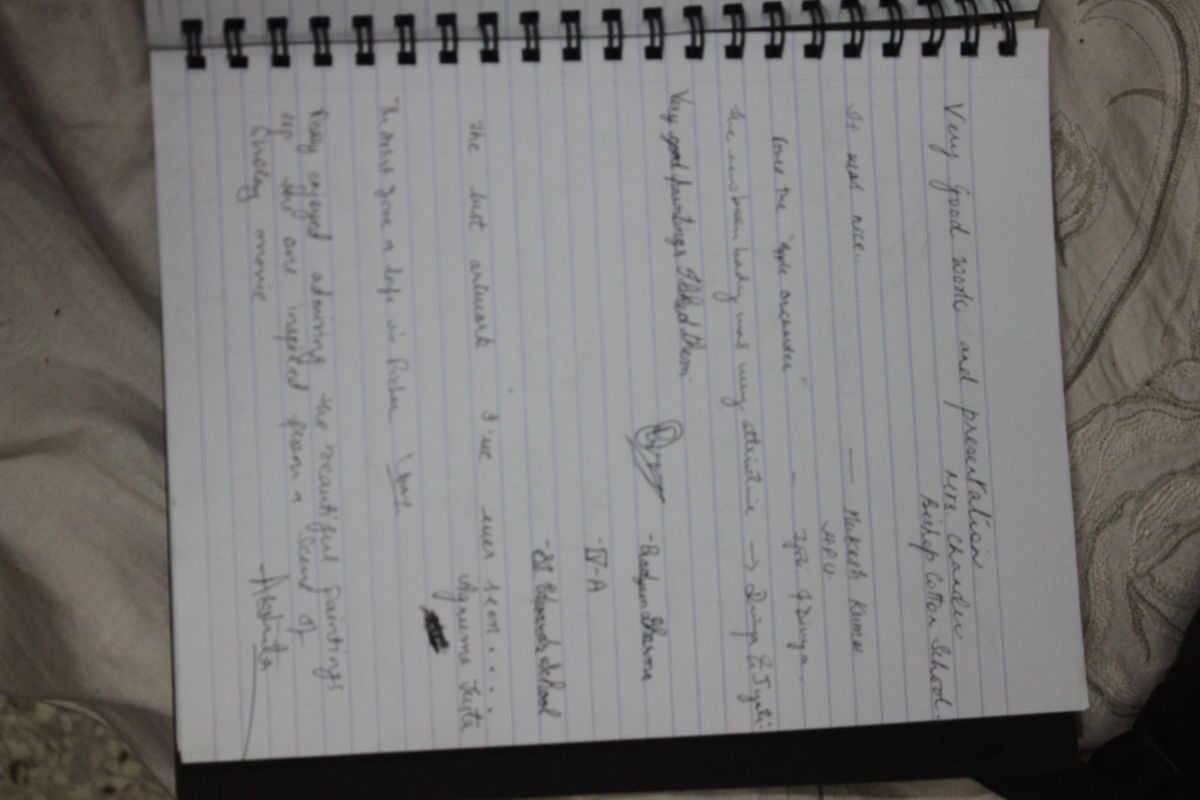 Very Good work and presentation
Mrs. Chander
Bishop Cotton School.
It was nice. — Mukesh Kumar
HPU.
loved the "Apple orchards" - Jyoti & Divya.
the new born baby was very attractive → Divya & Jyoti
Very good paintings I liked them.
- Pradyum Sharma
- IV-A
- St Edwards School
The best artwork I've ever seen . . . .
The Artist gave a life in
Really enjoyed admiring the beautiful paintings
up the one inspired from a scene of
movie
Akshita